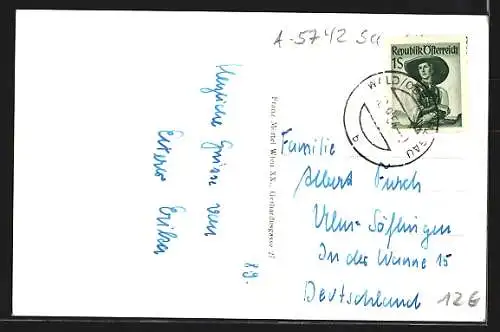 A-5742
Republik Österreich
1S
WALD
b
Herzliche Grüsse von
Erika
Franz Mettel Wien XX., Gerhardusgasse 27
Familie
Albert Furch
Ulm-Söflingen
In der Wanne 15
Deutschland
12€